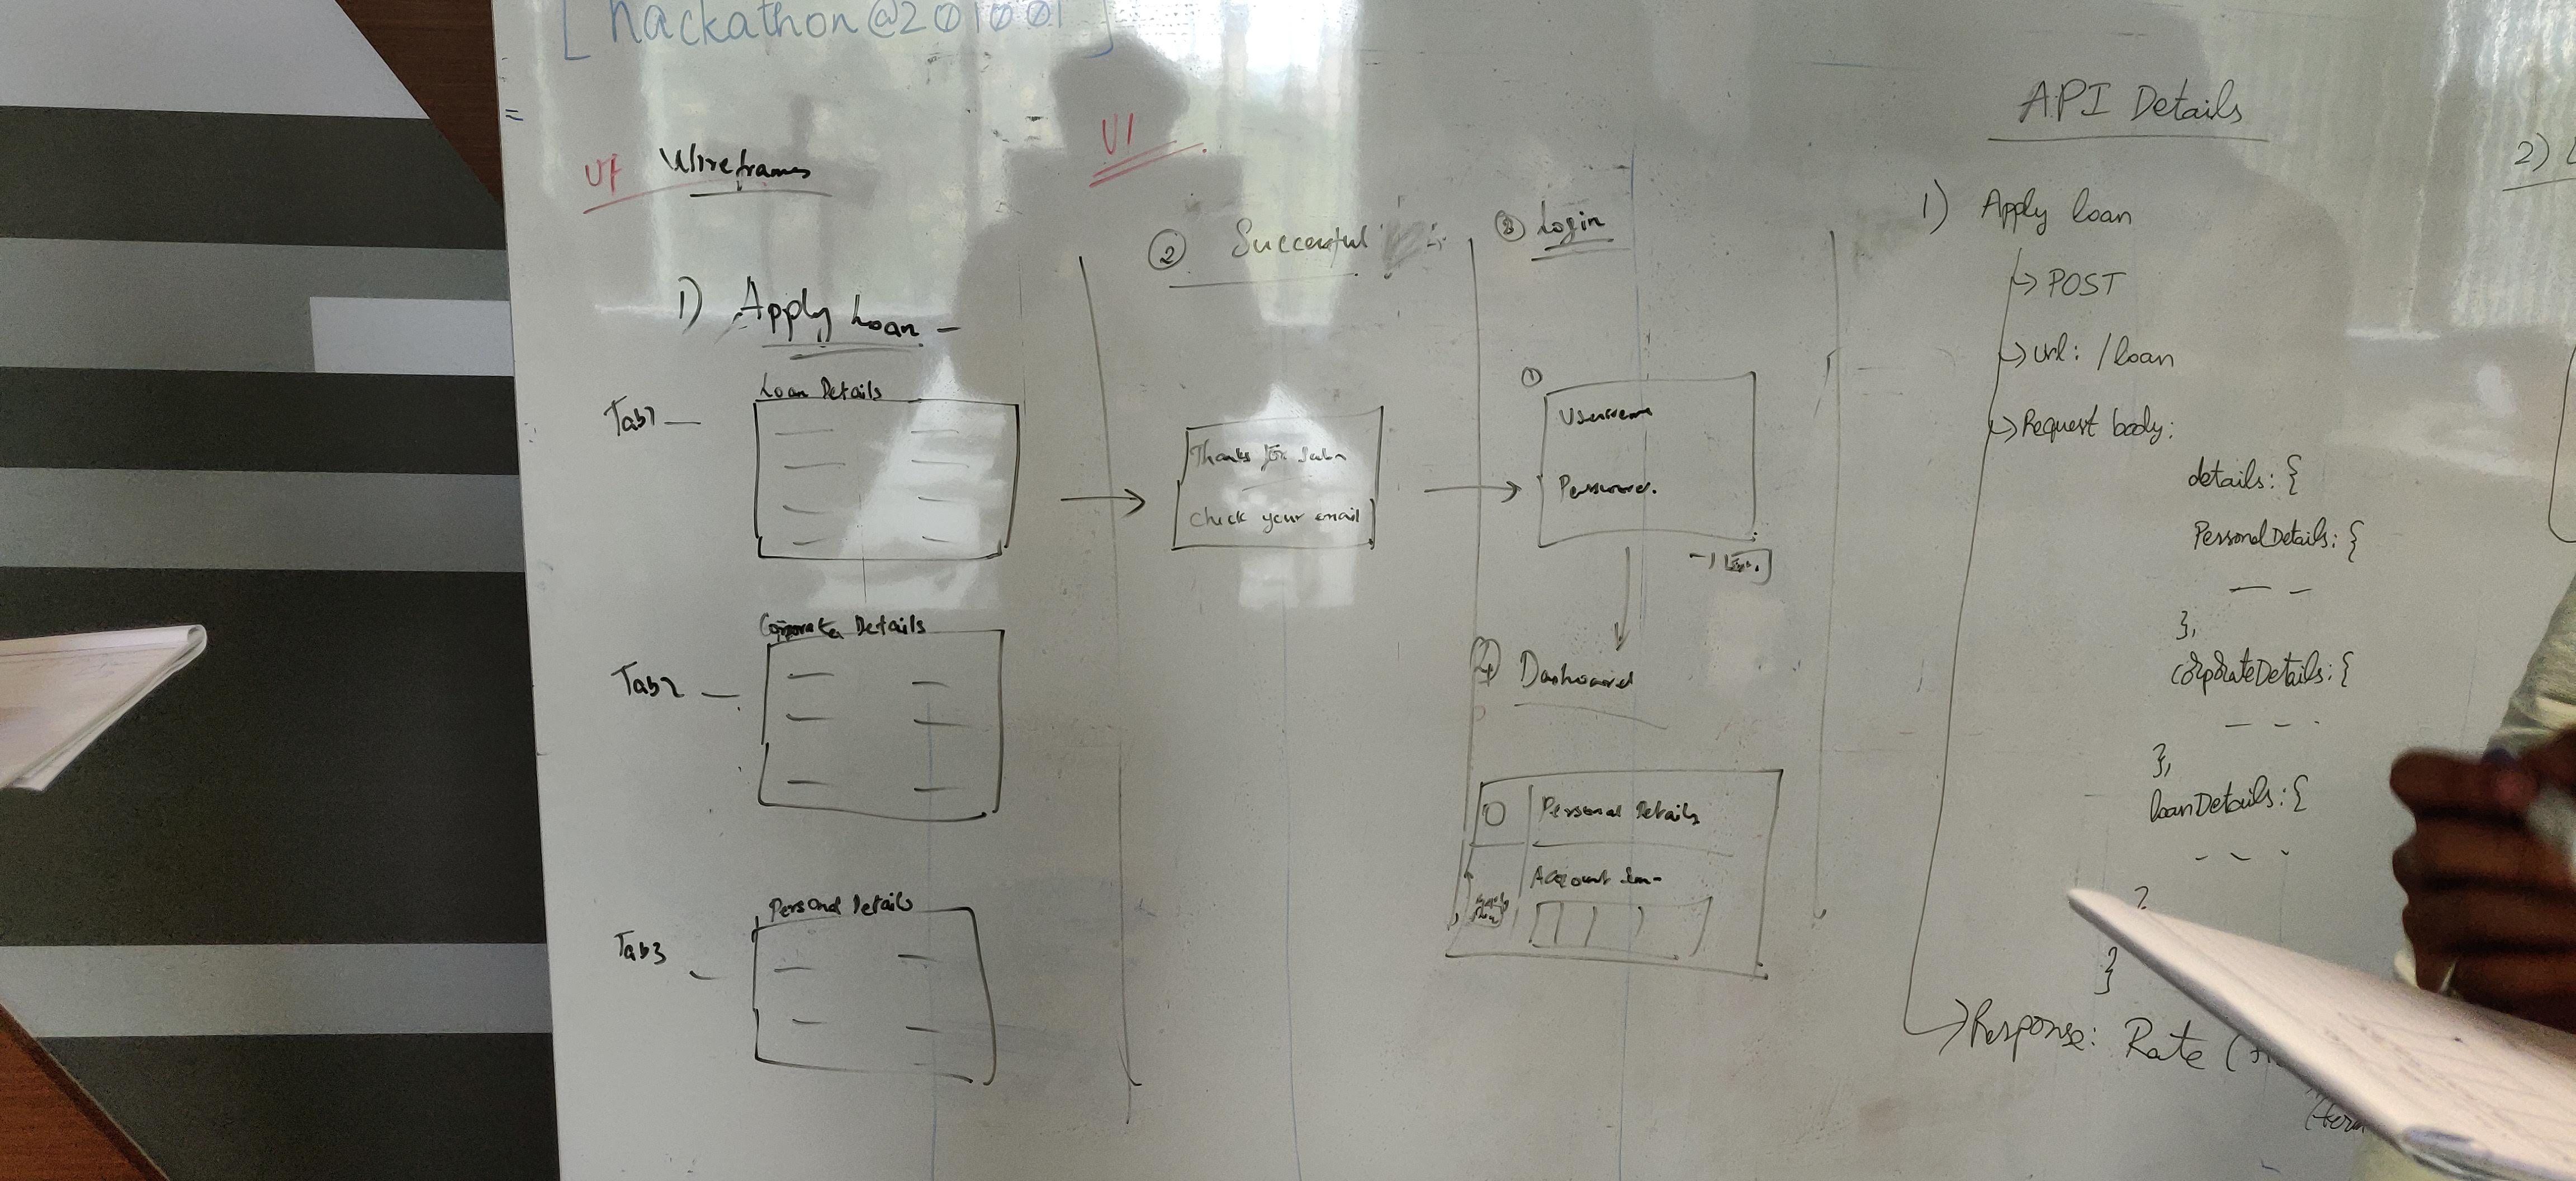 [ hackathon@201001 ]
UI Wireframes
UI
1) Apply Loan -
Tab1 -
Loan Details
Tab2 -
Corporate Details
Tab3 -
Personal Details
② Successful
Thanks for Subm
Check your email
③ Login
①
Username
Password.
④ Dashboard
Personal Details
Account
API Details
1) Apply loan
↳ POST
↳ url: /loan
↳ Request body:
details: {
PersonalDetails: {
— —
},
corporateDetails: {
- - -
},
loanDetails: {
- - -
}
}
↳ Response: Rate (
2)